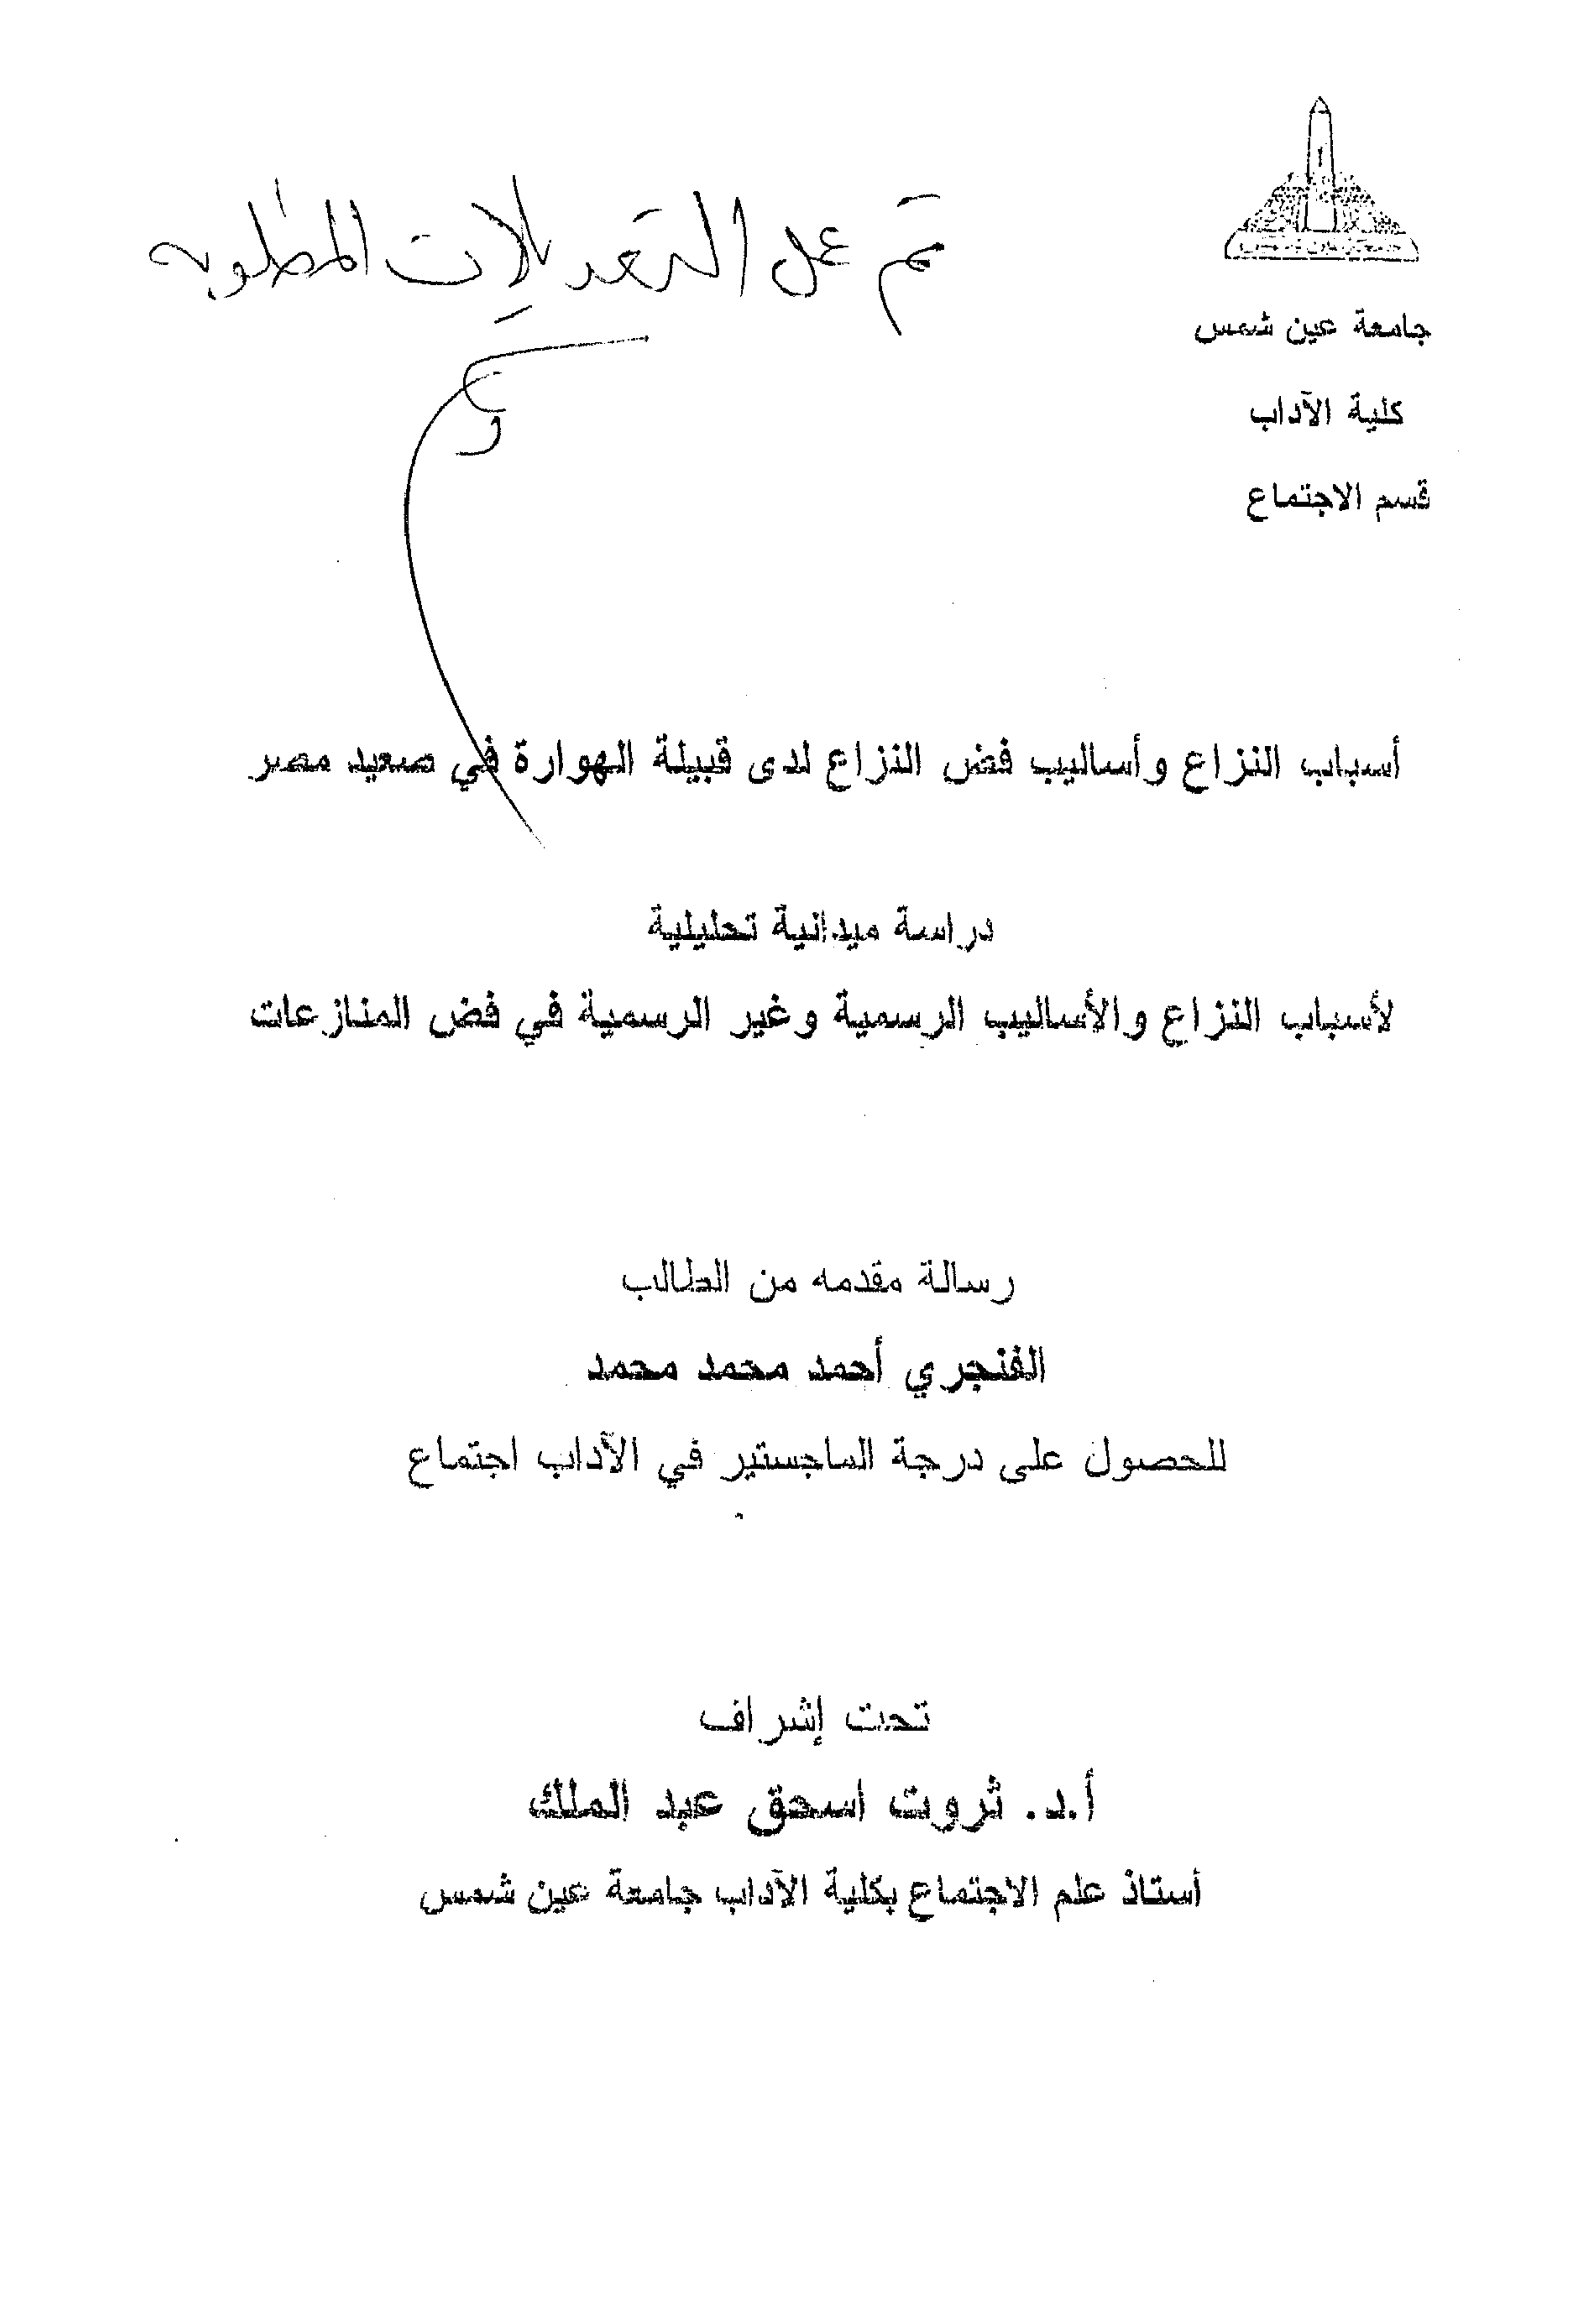 تم عمل التعديلات المطلوبه
جامعة عين شمس
كلية الآداب
قسم الاجتماع
أسباب النزاع وأساليب فض النزاع لدى قبيلة الهوارة في صعيد مصر
دراسة ميدانية تحليلية
لأسباب النزاع والأساليب الرسمية وغير الرسمية في فض المنازعات
رسالة مقدمه من الطالب
الفنجري أحمد محمد محمد
للحصول على درجة الماجستير في الآداب اجتماع
تحت إشراف
أ.د. ثروت اسحق عبد الملك
أستاذ علم الاجتماع بكلية الآداب جامعة عين شمس